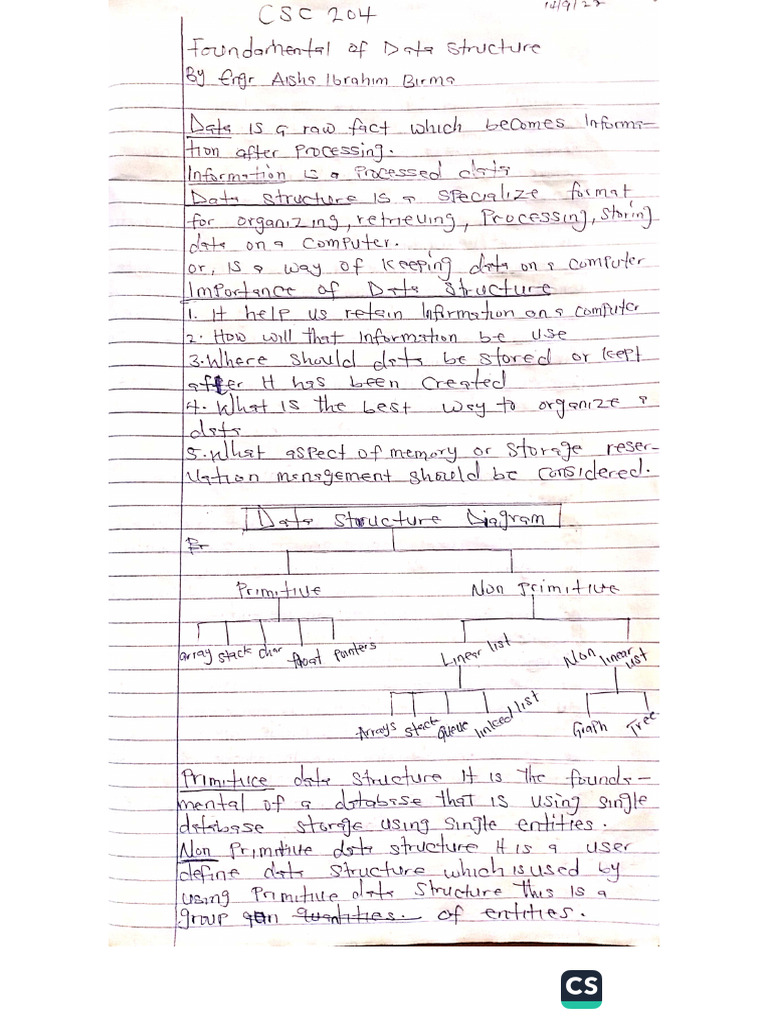 CSC 204
14/9/22
Foundamental of Data structure
By Engr Aisha Ibrahim Birma
Data is a raw fact which becomes informa-
tion after processing.
Information is a processed data
Data structure is a specialize format
for organizing, retrieving, Processing, storing
data on a computer.
or, is a way of keeping data on a computer
Importance of Data structure
1. It help us retain Information on a computer
2. How will that information be use
3. Where should data be stored or kept
after it has been created
4. What is the best way to organize a
data
5. What aspect of memory or storage reser-
vation management should be considered.
Data Structure Diagram
Primitive Non Primitive
array stack char float pointers Linear list Non linear list
Arrays stack queue linked list Graph Tree
Primitive data structure it is the founda-
mental of a database that is using single
database storage using single entities.
Non Primitive data structure it is a user
define data structure which is used by
using Primitive data structure this is a
group quantities. of entities.
CS